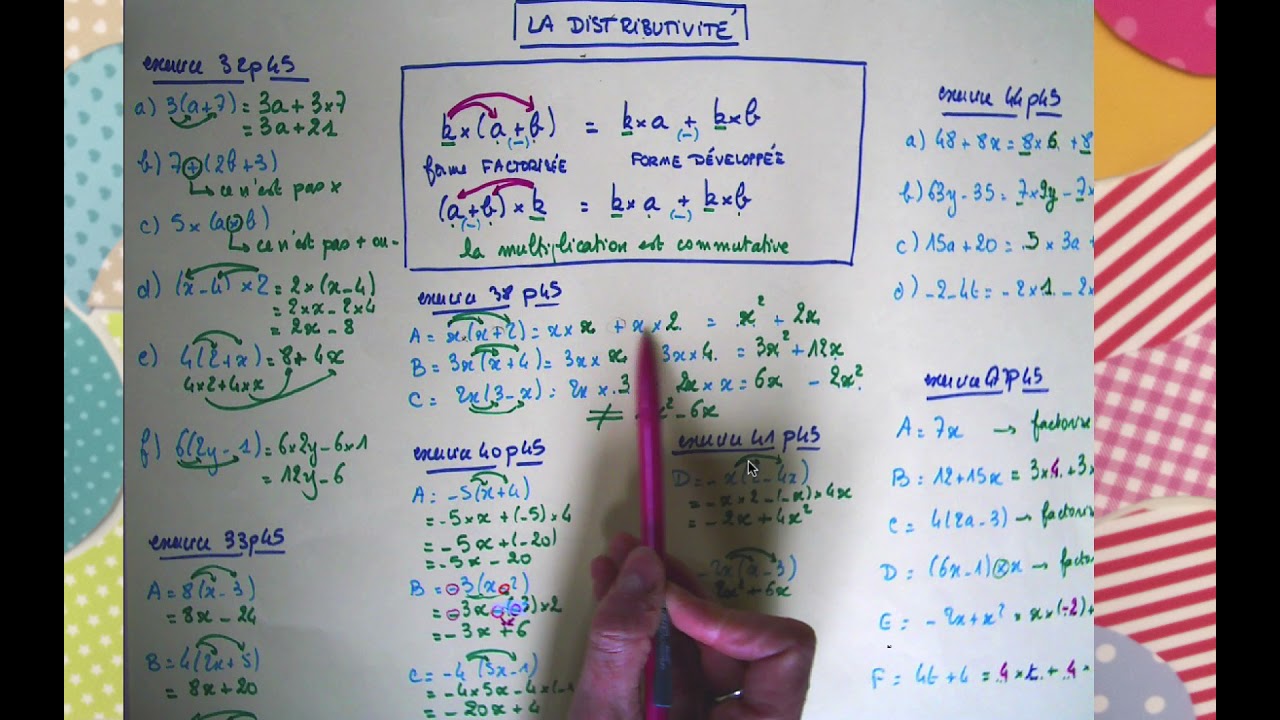 LA DISTRIBUTIVITÉ
exercice 32 p45
a) 3(a+7) = 3a + 3×7
= 3a + 21
b) 7 + (2b+3)
ce n'est pas ×
c) 5 × (a×b)
ce n'est pas + ou -
d) (x-4) × 2 = 2×(x-4)
= 2×x - 2×4
= 2x - 8
e) 4(2+x) = 8 + 4x
4×2+4×x
f) 6(2y-1) = 6×2y - 6×1
= 12y - 6
exercice 33 p45
A = 8(x-3)
= 8x - 24
B = 4(2x+5)
= 8x + 20
k×(a+b) = k×a + k×b
(-) (-)
forme FACTORISÉE FORME DÉVELOPPÉE
(a+b)×k = k×a + k×b
(-) (-)
la multiplication est commutative
exercice 38 p45
A = x(x+2) = x×x + x×2 = x² + 2x
B = 3x(x+4) = 3x×x 3x×4 = 3x² + 12x
C = 2x(3-x) = 2x×3 2x×x = 6x - 2x²
≠ x² - 6x
exercice 40 p45
A = -5(x+4)
= -5×x + (-5)×4
= -5x + (-20)
= -5x - 20
B = -3(x-2)
= -3x - (-3)×2
= -3x + 6
C = -4(5x-1)
= -4×5x - 4×(-1
= -20x + 4
exercice 41 p45
D = -x(2-4x)
= -x×2 - (-x)×4x
= -2x + 4x²
-2x(x-3)
2x² + 6x
exercice 44 p45
a) 48 + 8x = 8×6 + 8
b) 63y - 35 = 7×9y - 7×
c) 15a + 20 = 5 × 3a +
d) -2 - 4t = -2×1 - 2×
exercice 47 p45
A = 7x → factorise
B = 12 + 15x = 3×4 + 3×
C = 4(2a-3) → factoris
D = (6x-1)×x → factor
E = -2x + x² = x×(-2) +
F = 4t + 4 = 4×t + 4